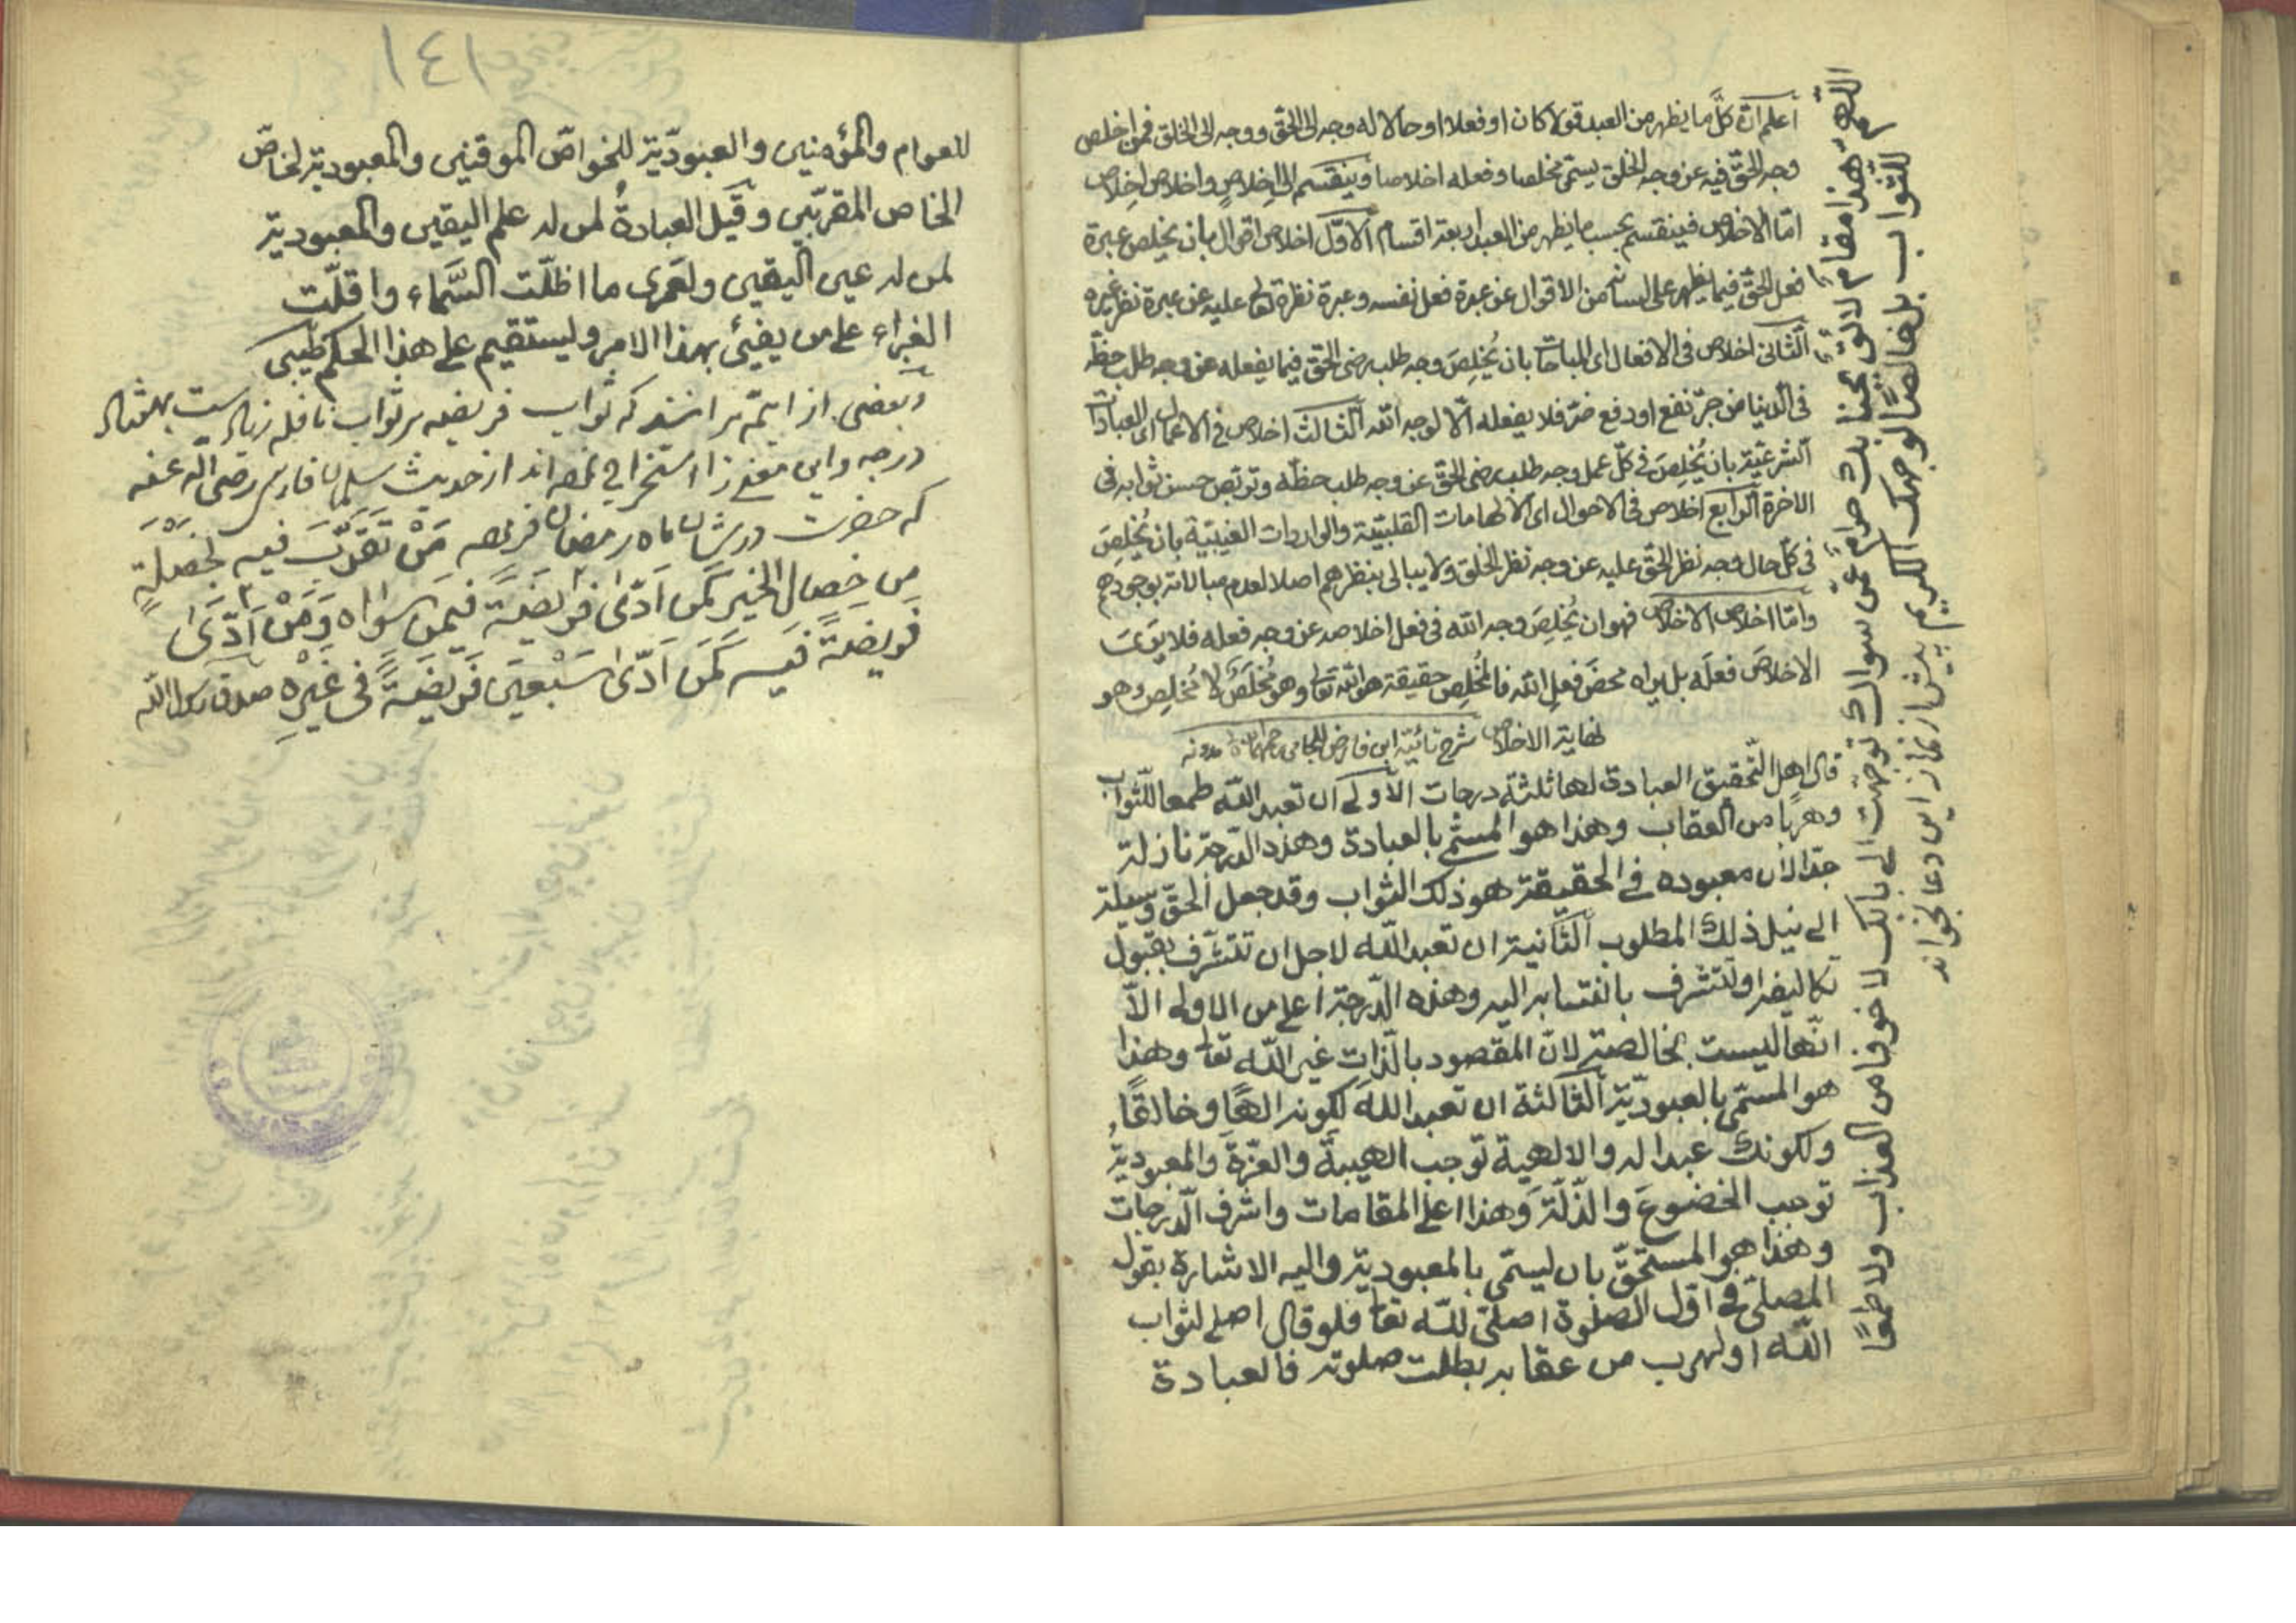 اعلم ان كلَّ ما يظهر من العبد قولا كان او فعلا او حالا له وجه الى الحق ووجه الى الخلق فمن اخلص
وجه الحقّ فيه عن وجه الخلق يسمّى مخلصا وفعله اخلاصا وينقسم الى اخلاصٍ واخلاص اخلاص
امّا الاخلاص فينقسم بحسب ما يظهر من العبد اربعة اقسام الاوّل اخلاص اقوال بان يخلص عبرة
فعل الحقّ فيما يظهر على لسانه من الاقوال عن عبرة فعل نفسه وعبرة نظره تعالى عليه عن عبرة نظر غيره
الثانى اخلاص فى الافعال اى المباحات بان يُخلِصَ وجه طلب رضى الحقّ فيما يفعله عن وجه طلب حظّه
فى الدنيا من جرّ نفع او دفع ضرّ فلا يفعله الّا لوجه الله الثالث اخلاص فى الاعمال اى العبادات
الشرعيّة بان يُخلِصَ فى كلّ عمل وجه طلب رضى الحقّ عن وجه طلب حظّه وتربّص حسن ثوابه فى
الاخرة الرابع اخلاص فى الاحوال اى الالهامات القلبيّة والواردات الغيبيّة بان يُخلِصَ
فى كلّ حال وجه نظر الحقّ عليه عن وجه نظر الخلق ولا يبالى بنظرهم اصلا لعدم مبالاته بوجودهم
وامّا اخلاص الاخلاص فهو ان يُخلِصَ وجه الله فى فعل اخلاصه عن وجه فعله فلا يَرَى
الاخلاصَ فعلَه بل يراه محضَ فعلِ الله فالمُخلِص حقيقة هو الله تعالى وهو مُخلَص لا مُخلِص وهو
نهاية الاخلاص شرح تائية ابن فارض للجامى
قال اهل التّحقيق العبادة لها ثلثة درجات الاولى ان تعبد اللّه طمعا للثّواب
وهربًا من العقاب وهذا هو المسمّى بالعبادة وهذه الدّرجة نازلة
جدّا لان معبوده فى الحقيقة هو ذلك الثواب وقد جعل الحقّ وسيلة
الى نيل ذلك المطلوب الثانية ان تعبد اللّه لاجل ان تتشرّف بقبول
تكاليفه او تتشرف بانتسابه اليه وهذه الدّرجة اعلى من الاولى الّا
انّها ليست بخالصة لانّ المقصود بالذّات غير اللّه تعا وهذا
هو المسمّى بالعبوديّة الثالثة ان تعبد اللّه لكونه الهًا وخالقًا
ولكونك عبدا له والالهية توجب الهيبةَ والعزّةَ والعبوديّة
توجب الخضوعَ والذّلّة وهذا اعلى المقامات واشرف الدّرجات
وهذا هو المستحقّ بان يسمّى بالمعبوديّة واليه الاشارة بقول
المصلّى فى اوّل الصلوة اصلّى للّه تعا فلو قال اصلى لثواب
اللّه او لهرب من عقابه بطلت صلوته فالعبادة
اللّهم هذا مقام لائق بجنابك حرام عن سواك توجهت الى بابك لا خوفا من العذاب ولا طمعًا
للثواب بل خالصًا لوجهك الكريم پيش از نماز اين دعا بخواند
١٤١
للعوام والمؤمنين والعبوديّة للخواصّ الموقنين والمعبودية لخاصّ
الخاص المقرّبين وقيل العبادةُ لمن له علم اليقين والمعبودية
لمن له عين اليقين ولعمرى ما اظلّت السَّماء واقلّت
الغبراء على من يفئ بهذا الامر وليستقيم على هذا الحكم طيبى
وبعضى از ائمّه برانند كه ثواب فريضه بر ثواب نافله زياده است بهفتاد
درجه واين معنى را استخراج نموده اند از حديث سلمان فارسى رضى اللّه عنه
كه حضرت در شان ماه رمضان فرموده مَنْ تَقَرَّبَ فيه بخَصْلَةٍ
مِن خِصال الخير كَمَن اَدّى فريضةً فيمَن سواه وَمَنْ اَدَّى
فَريضةً فيه كَمَن اَدّى سَبْعينَ فَريضَةً فى غيْرِه صدق رسول اللّه